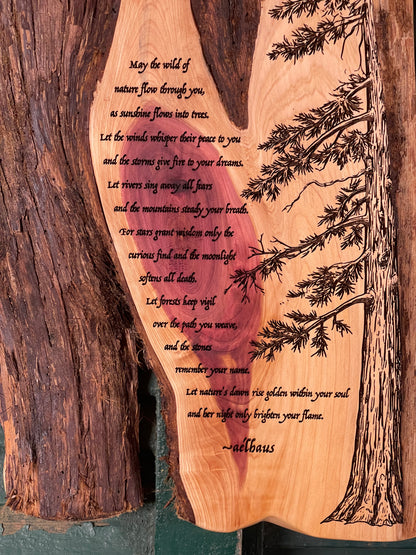 May the wild of
nature flow through you,
as sunshine flows into trees.
Let the winds whisper their peace to you
and the storms give fire to your dreams.
Let rivers sing away all fears
and the mountains steady your breath.
For stars grant wisdom only the
curious find and the moonlight
softens all death.
Let forests keep vigil
over the path you weave,
and the stones
remember your name.
Let nature's dawn rise golden within your soul
and her night only brighten your flame.
~aelhaus